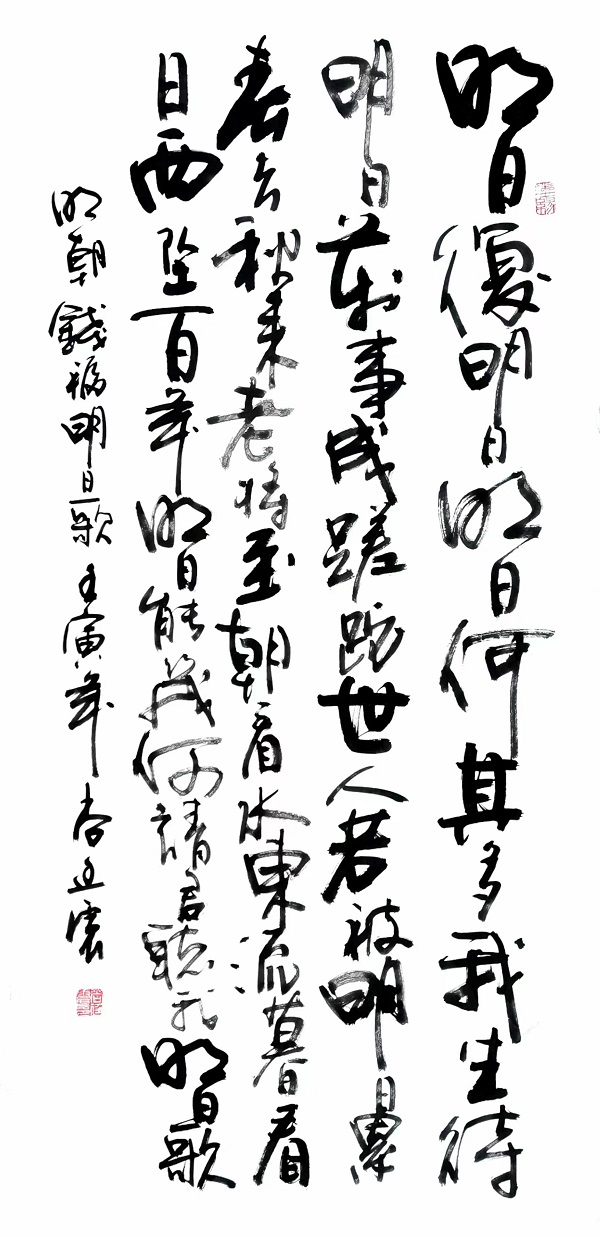 明日復明日明日何其多我生待
明日萬事成蹉跎世人若被明日累
春去秋来老将至朝看水東流暮看
日西墜百年明日能幾何請君聽我明日歌
明朝錢福明日歌壬寅年